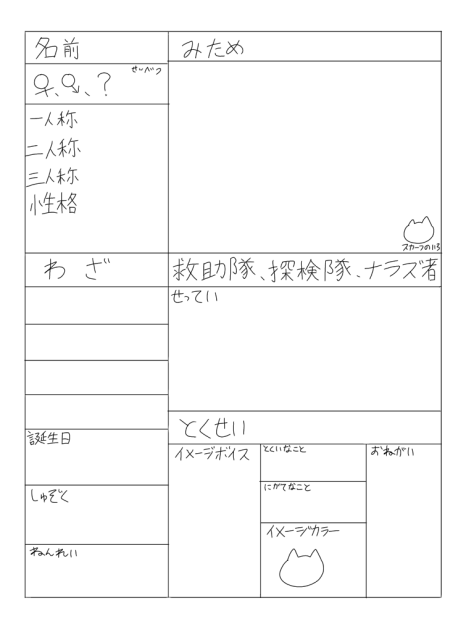 名前
みため
せいべつ
♀、♀、?
一人称
二人称
三人称
性格
スカーフのいろ
わざ
救助隊、探検隊、ナラズ者
せってい
とくせい
誕生日
イメージボイス
とくいなこと
おねがい
にがてなこと
しゅぞく
イメージカラー
ねんれい